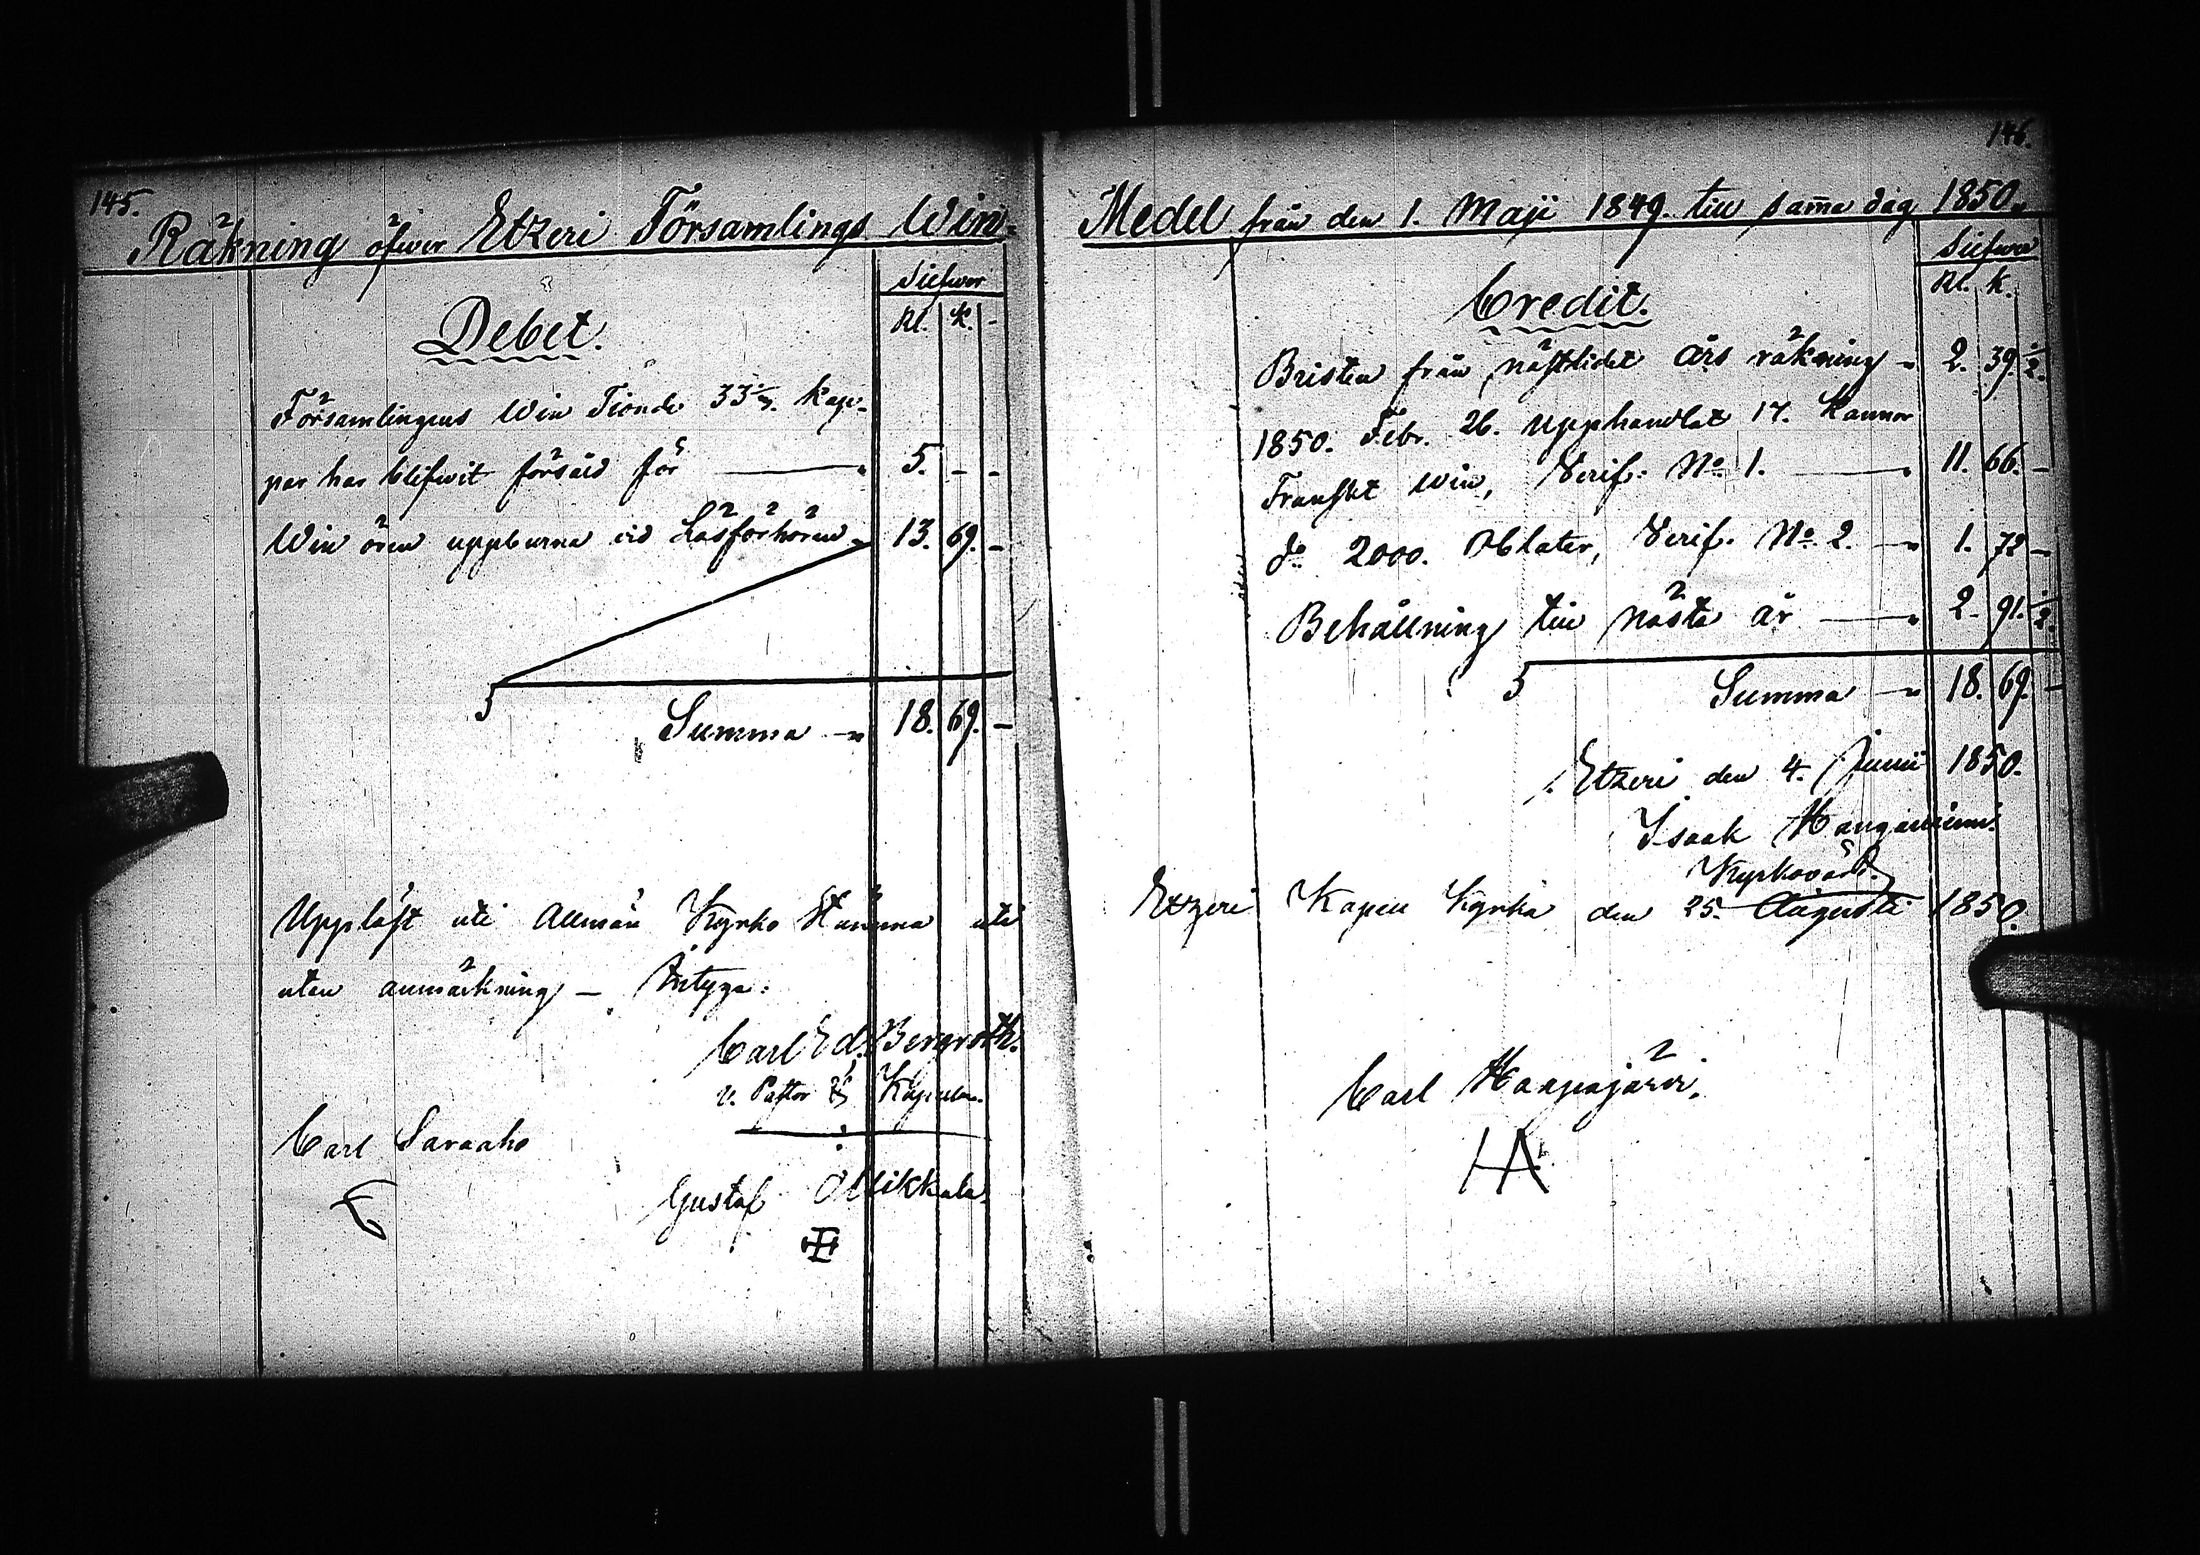 145.
Räkning öfwer Etzeri Församlings Win=
Silfwer
Debet.
Rl. k. -
Församlingens Win Tionde 33 kap-
par har blifwit försåld för — " 5. - -
Win ören uppburna vid Läsförhören " 13. 69. -
Summa — " 18. 69. -
Uppläst uti Allmän Kyrko Stämma uti
utan anmärkning — Intyga:
Carl Ed. Bergroth.
v. Pastor
Carl Saraaho
Gustaf Ollikkala.
146.
Medel från den 1. Maji 1849. till samma dag 1850.
Silfwer
Credit.
Rl. k.
Bristen från nästlidet års räkning - " 2. 39. 1/2.
1850. Febr. 26. Upphandlat 17. Kannor
Franskt Win, Verif. No. 1. — " 11. 66. -
do 2000. Oblater, Verif. No. 2. — " 1. 72 -
Behållning till nästa år — " 2. 91. 1/2.
Summa — " 18. 69. -
Etzeri den 4. Junii 1850.
Isaak Hanganiemi.
Kyrkovärd.
Etzeri Kapell Kyrka den 25. Augusti 1850.
Carl Haapajärvi.
HA